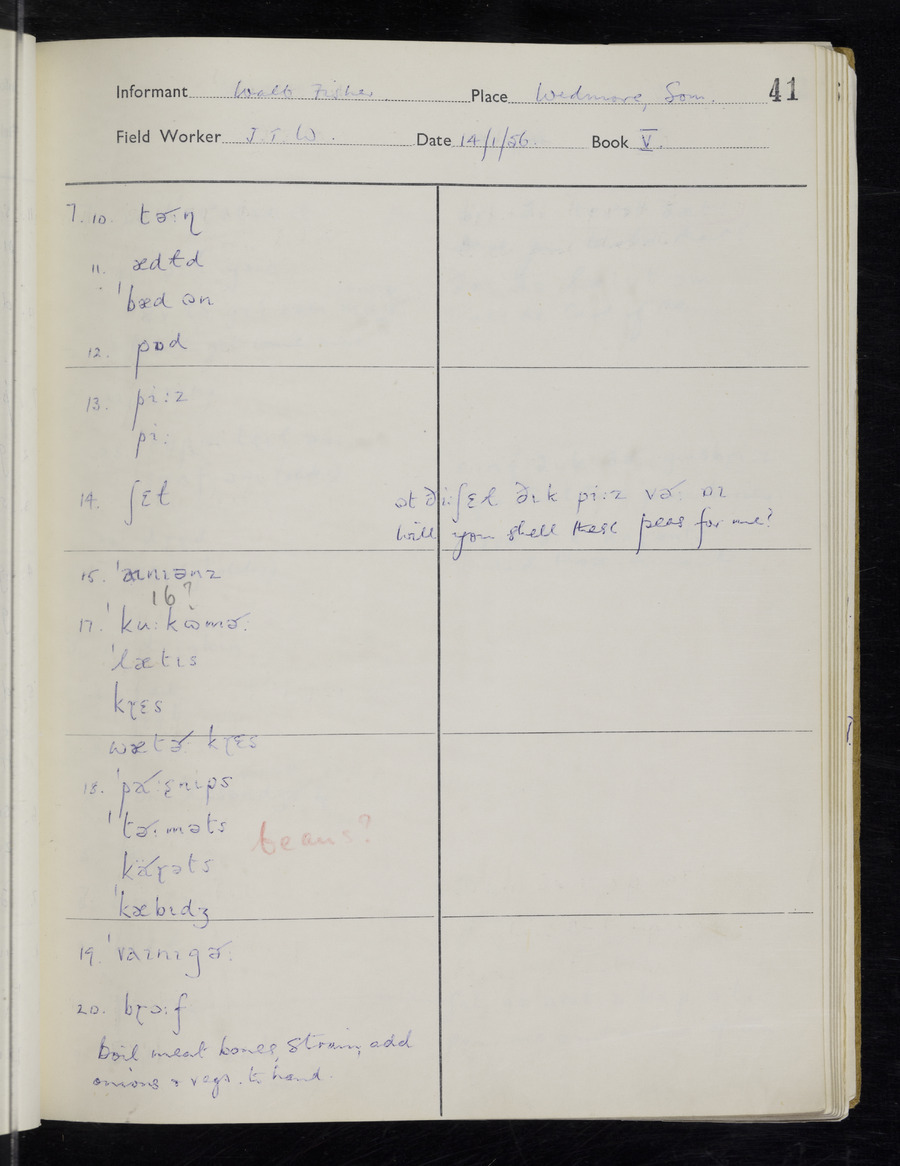 Informant Walt Fisher Place Wedmore, Som. 41
Field Worker J.T.W. Date 14/1/56. Book V.
7.10. tə˞:n
11. ædɫd
ˈbæd ɷn
12. pɒd
13. pi:z
pi:
14. ʃɛɫ
ðɪk pi:z və˞:
will you shell these peas for me?
15. ˈænɪənz
16?
17. ˈku:kɷmə˞:
ˈlætɪs
kɽɛs
wætə˞: kɽɛs
18. ˈpa˞:snɪps
ˈtə˞:məts
beans?
kæɽəts
ˈkæbɪdʒ
19. ˈvɪnɪgə˞:
20. bɽɔ:f
boil meat bones, strain, add
onions & vegs. to hand.